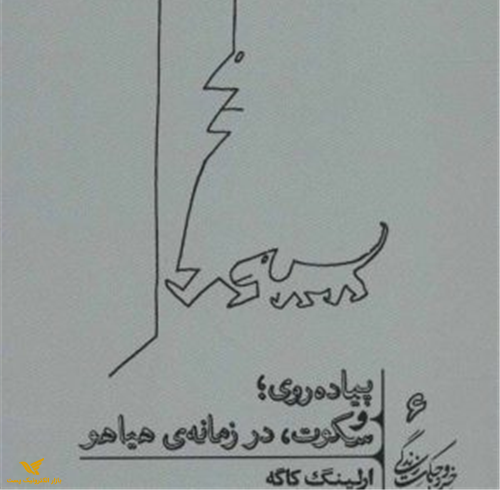 پیاده‌روی؛
و
سکوت، در زمانه‌ی هیاهو
ارلینگ کاگه
۶
خرد و حکمت زندگی